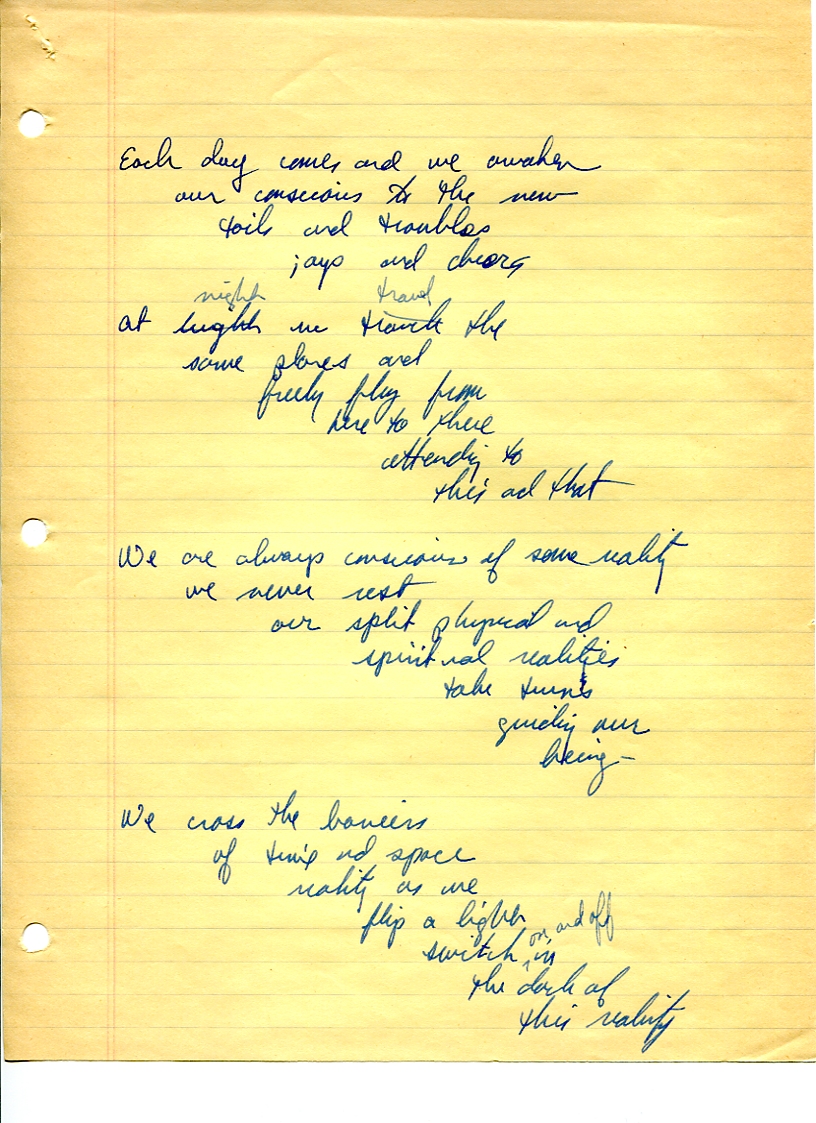 Each day comes and we awaken
our conscious to the new
toils and troubles
joys and cheers
night travel
at night we travel the
same planes and
freely play from
here to there
attending to
this and that
We are always conscious of some reality
we never rest
our split physical and
spiritual realities
take turns
guiding our
being -
We cross the barriers
of time and space
reality as we
flip a light
on and off
switch in
the dark of
this reality